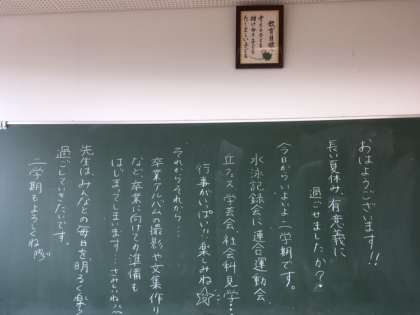 教育目標
考える子ども
助け合う子ども
たくましい子ども
おはようございます!!
長い夏休み、有意義に
過ごせましたか?
今日からいよいよ二学期です。
水泳記録会に連合運動会、
丘フェス、学芸会、社会科見学…
行事がいっぱい!!楽しみね☆
それからそれから…
卒業アルバムの撮影や文集作り
など、卒業に向けての準備も
はじまってしまいます…さみしいね
先生はみんなとの毎日を明るく楽
過ごしていきたいです。
二学期もよろしくね